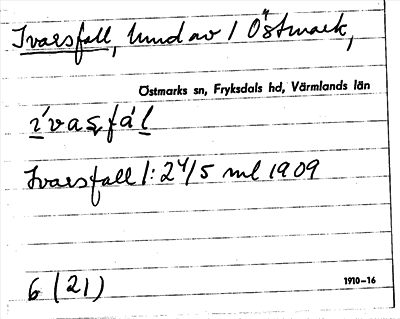 Ivarsfall, hmd av 1 Östmark,
Östmarks sn, Fryksdals hd, Värmlands län
Ivarsfall 1: 24/5 ml 1909
6 (21) 1910-16